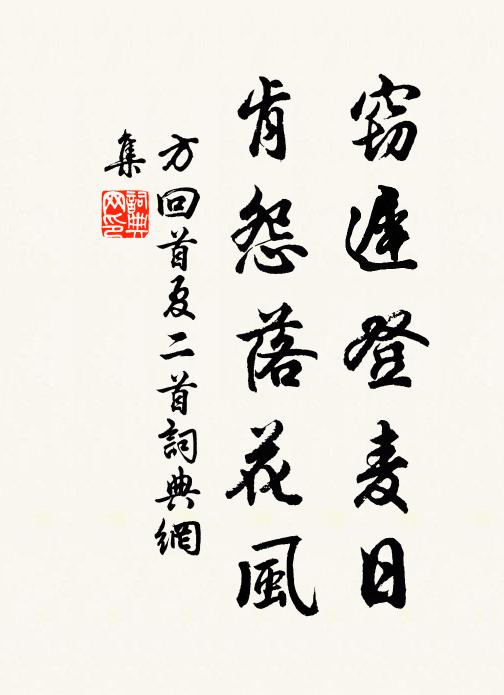 窃遲登麦日
肯怨落花風
方回首夏二首詞典網
集
詞典
網印